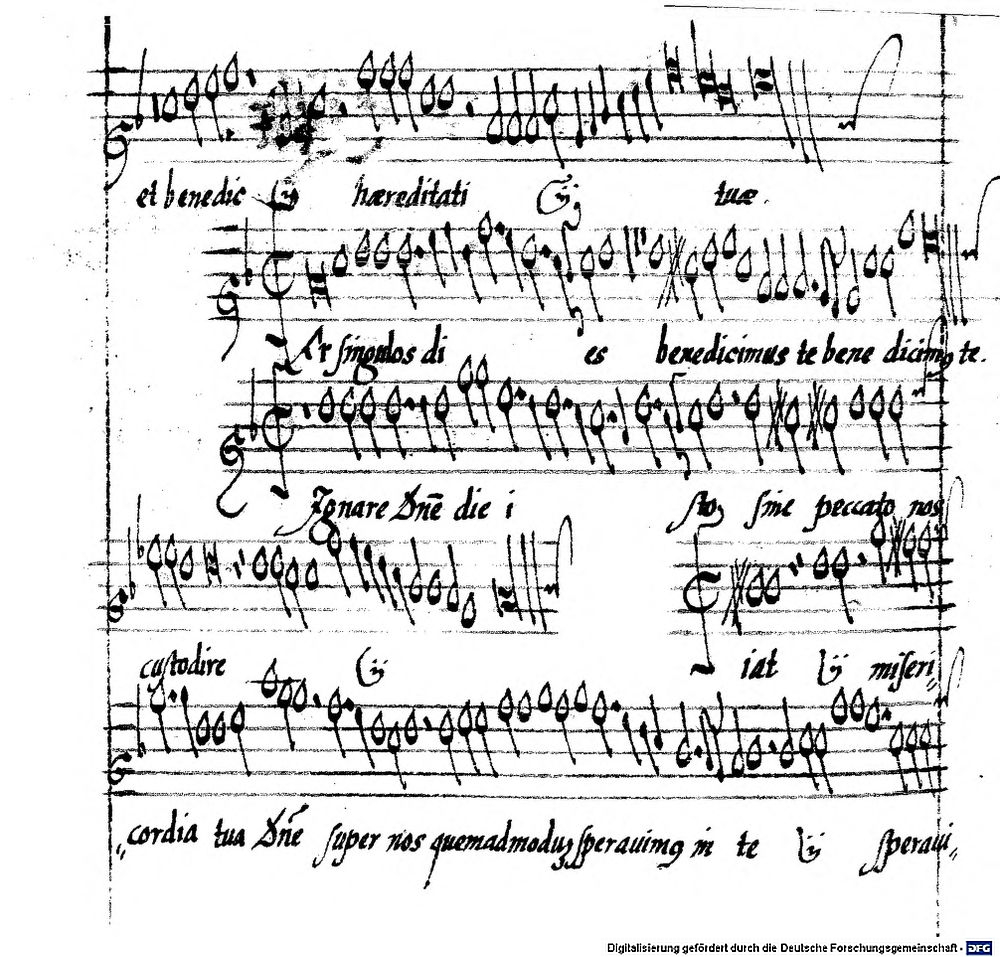 et benedic ij hæreditati ij tuæ.
Er singulos di es benedicimus te bene dicimꝰ te.
Ignare Dn̄e die i sto sine peccato nos
custodire ij iat ij miseri„
„cordia tua Dn̄e super nos quemadmoduꝫ sperauimꝰ in te ij speraui„
Digitalisierung gefördert durch die Deutsche Forschungsgemeinschaft - DFG